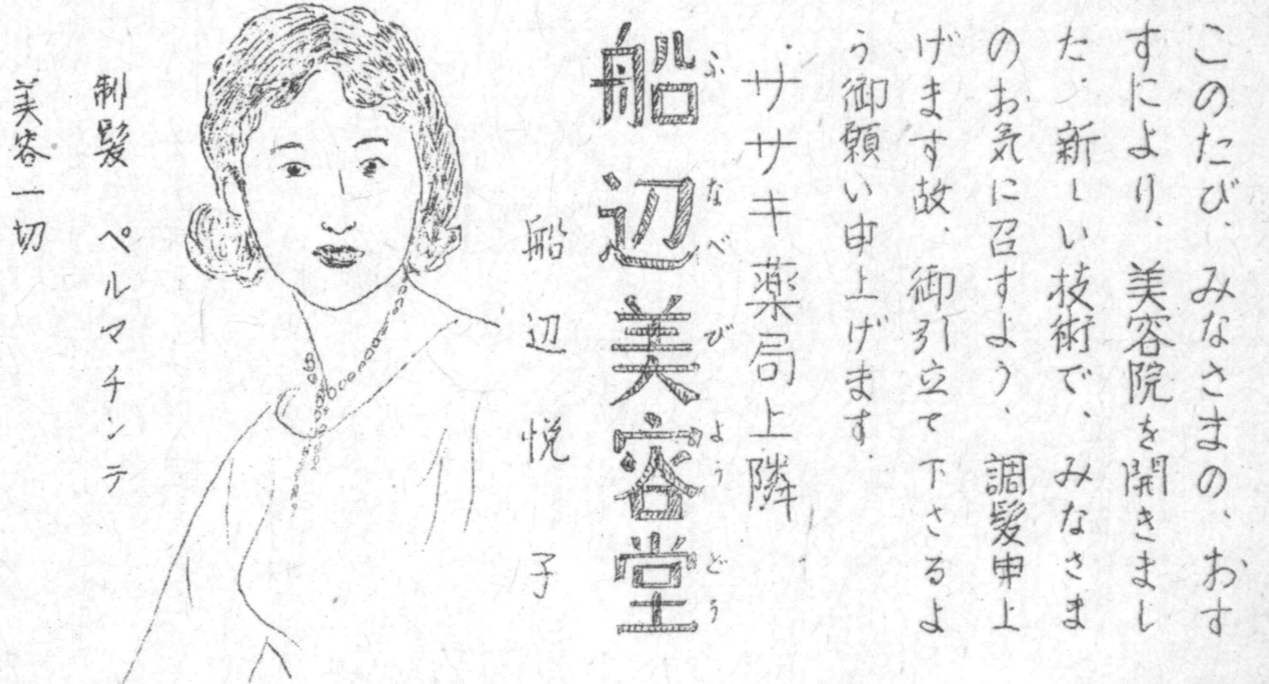 このたび、みなさまの、おす
すにより、美容院を開きまし
た、新しい技術で、みなさま
のお気に召すよう、調髪申上
げます故、御引立て下さるよ
う御願い申上げます。
ササキ薬局上隣
船辺美容堂
ふなべびようどう
船辺悦子
制髪 ペルマチンテ
美容一切